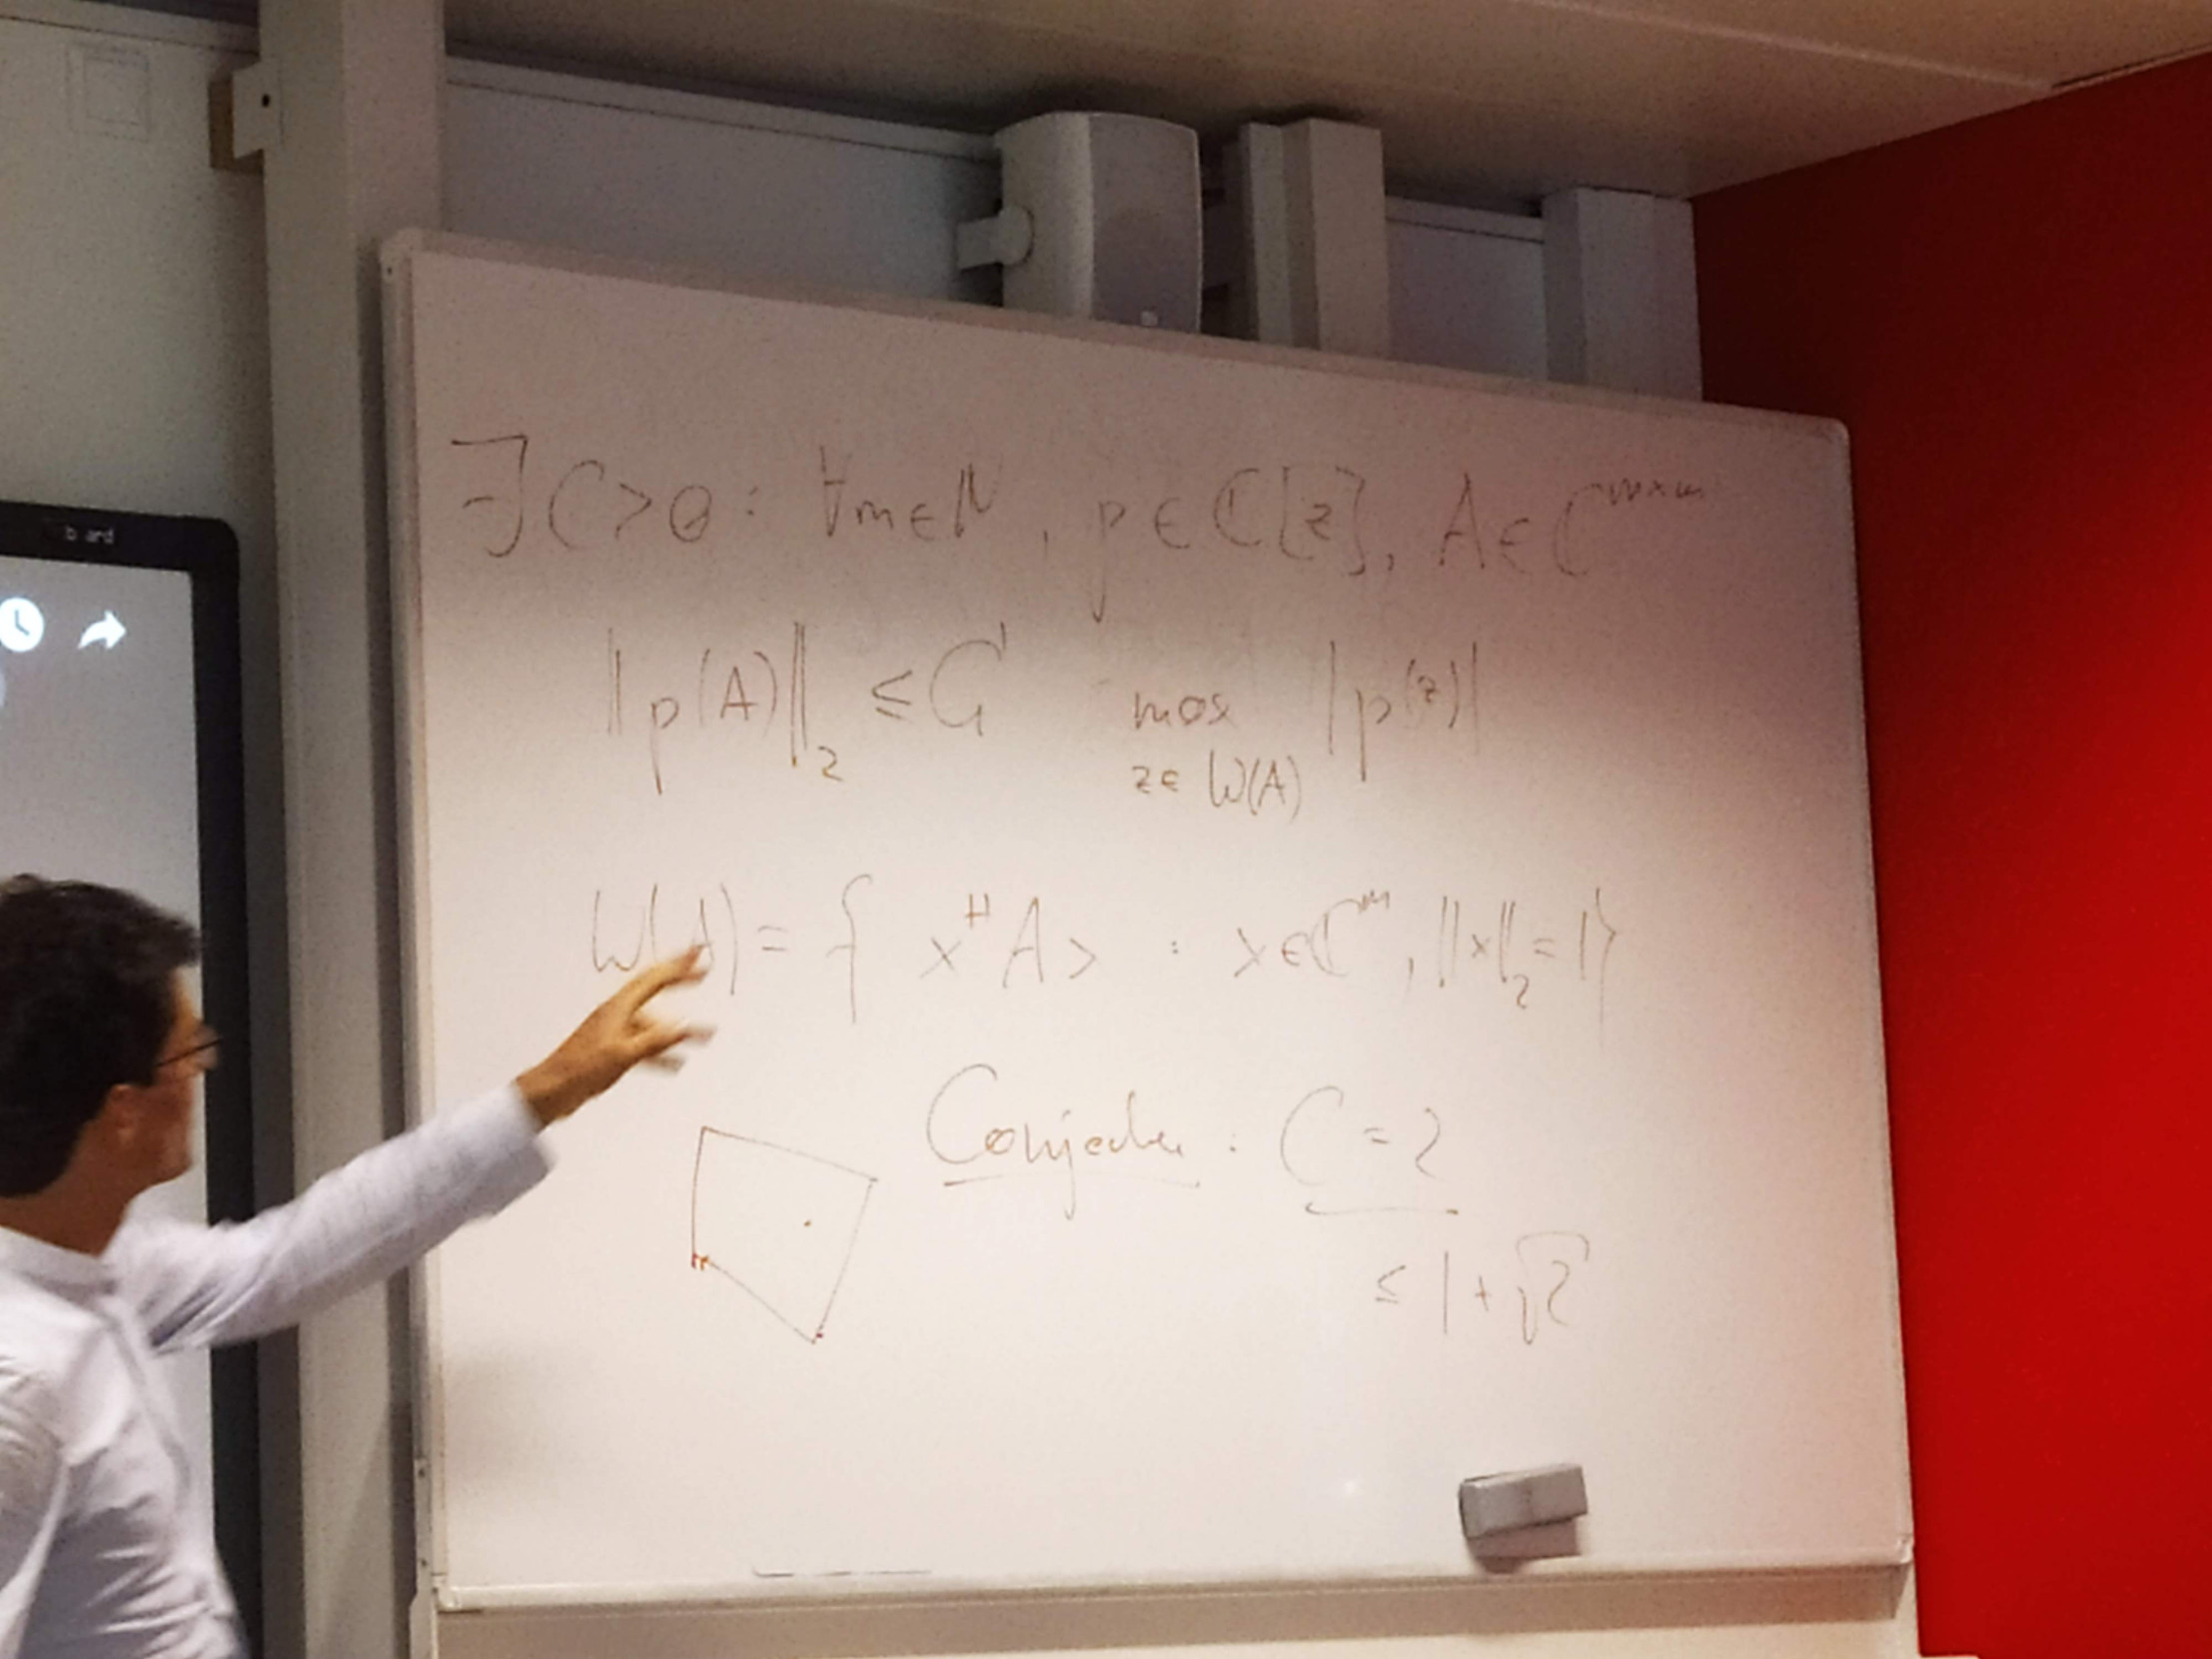 ∃ C > 0 : ∀ m ∈ ℕ , p ∈ ℂ[z], A ∈ ℂ^{m×m}
‖p(A)‖₂ ≤ C max |p(z)|
z ∈ W(A)
W(A) = { x^H A x : x ∈ ℂ^m , ‖x‖₂ = 1}
Conjecture : C = 2
≤ 1 + √2